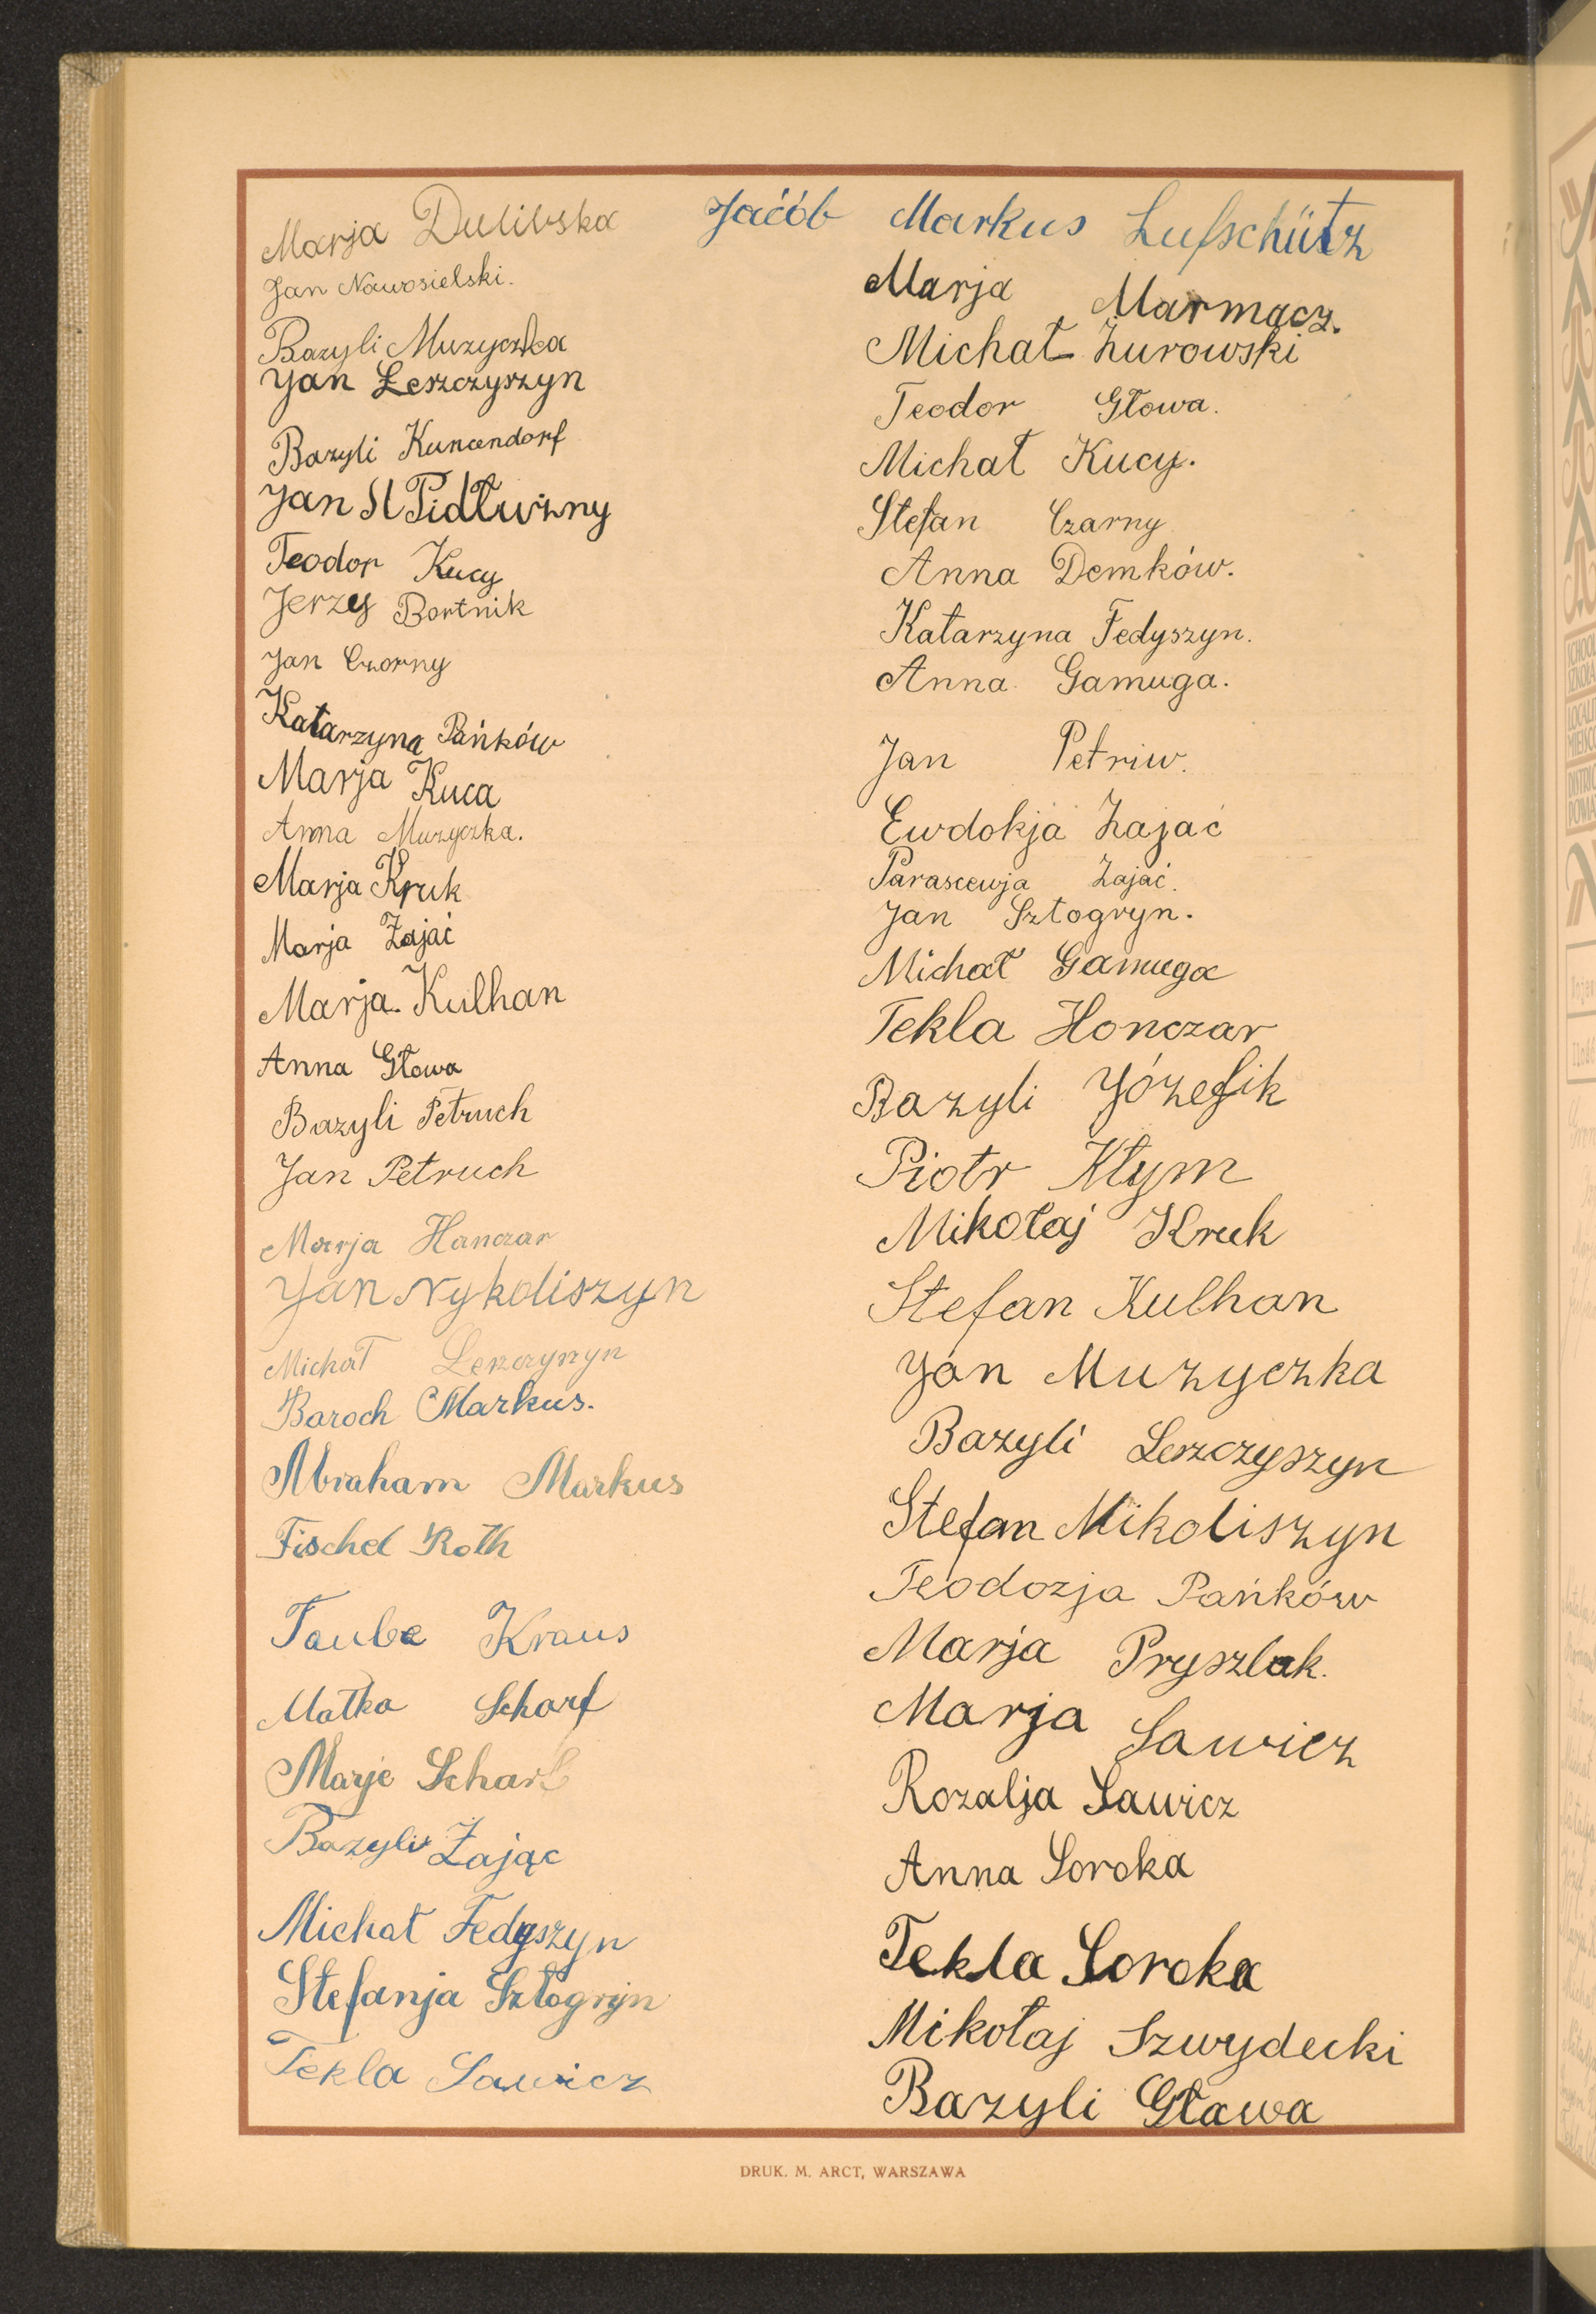 Marja Dulibska
Jan Nowosielski.
Bazyli Muzyczka
Jan Łeszczyszyn
Bazyli Kuncendorf
Jan St Pidłużny
Teodor Kucy
Jerzy Bortnik
Jan Czorny
Katarzyna Pańków
Marja Kuca
Anna Muzyczka.
Marja Kruk
Marja Zajać
Marja. Kulhan
Anna Głowa
Bazyli Petruch
Jan Petruch
Marja Hanczar
Jan Nykoliszyn
Michał Leszczyszyn
Baroch Markus.
Abraham Markus
Fischel Roth
Taube Kraus
Matka Scharf
Marje Scharf
Bazyli Zając
Michał Fedyszyn
Stefanja Sztogryn
Tekla Sawicz
Jacób Markus Lufschütz
Marja Marmacz.
Michał Żurowski
Teodor Głowa.
Michał Kucy.
Stefan Czarny
Anna Demków.
Katarzyna Fedyszyn.
Anna Gamuga.
Jan Petriw.
Ewdokja Zajać
Parascewja Zajać.
Jan Sztogryn.
Michał Gamuga
Tekla Honczar
Bazyli Józefik
Piotr Kłym
Mikołaj Kruk
Stefan Kulhan
Jan Muzyczka
Bazyli Leszczyszyn
Stefan Mikoliszyn
Teodozja Pańków
Marja Pryszlak.
Marja Sawicz
Rozalja Sawicz
Anna Soroka
Tekla Soroka
Mikołaj Szwydecki
Bazyli Gława
DRUK. M. ARCT, WARSZAWA